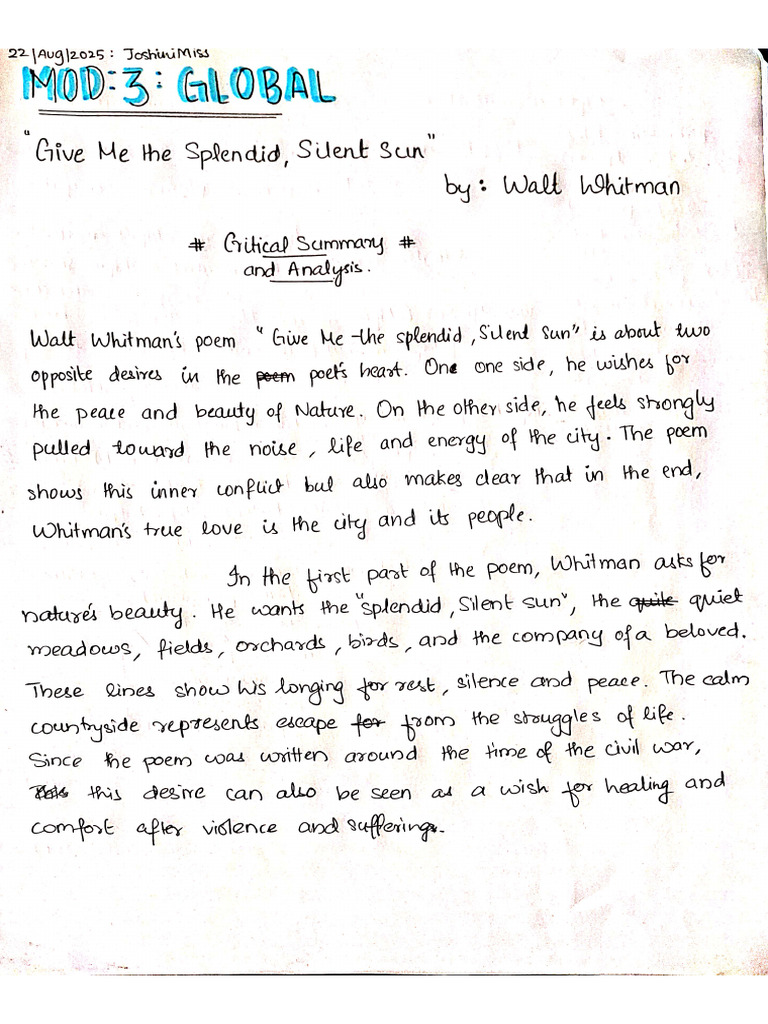 22/Aug/2025: Joshini Miss
MOD:3: GLOBAL
"Give Me the Splendid, Silent Sun"
by: Walt Whitman
# Critical Summary #
and Analysis.
Walt Whitman's poem "Give Me the splendid, Silent Sun" is about two
opposite desires in the poem poet's heart. One one side, he wishes for
the peace and beauty of Nature. On the other side, he feels strongly
pulled toward the noise, life and energy of the city. The poem
shows this inner conflict but also makes clear that in the end,
Whitman's true love is the city and its people.
In the first part of the poem, Whitman asks for
nature's beauty. He wants the "splendid, Silent sun", the quite quiet
meadows, fields, orchards, birds, and the company of a beloved.
These lines show his longing for rest, silence and peace. The calm
countryside represents escape for from the struggles of life.
Since the poem was written around the time of the civil war,
this desire can also be seen as a wish for healing and
comfort after violence and suffering.